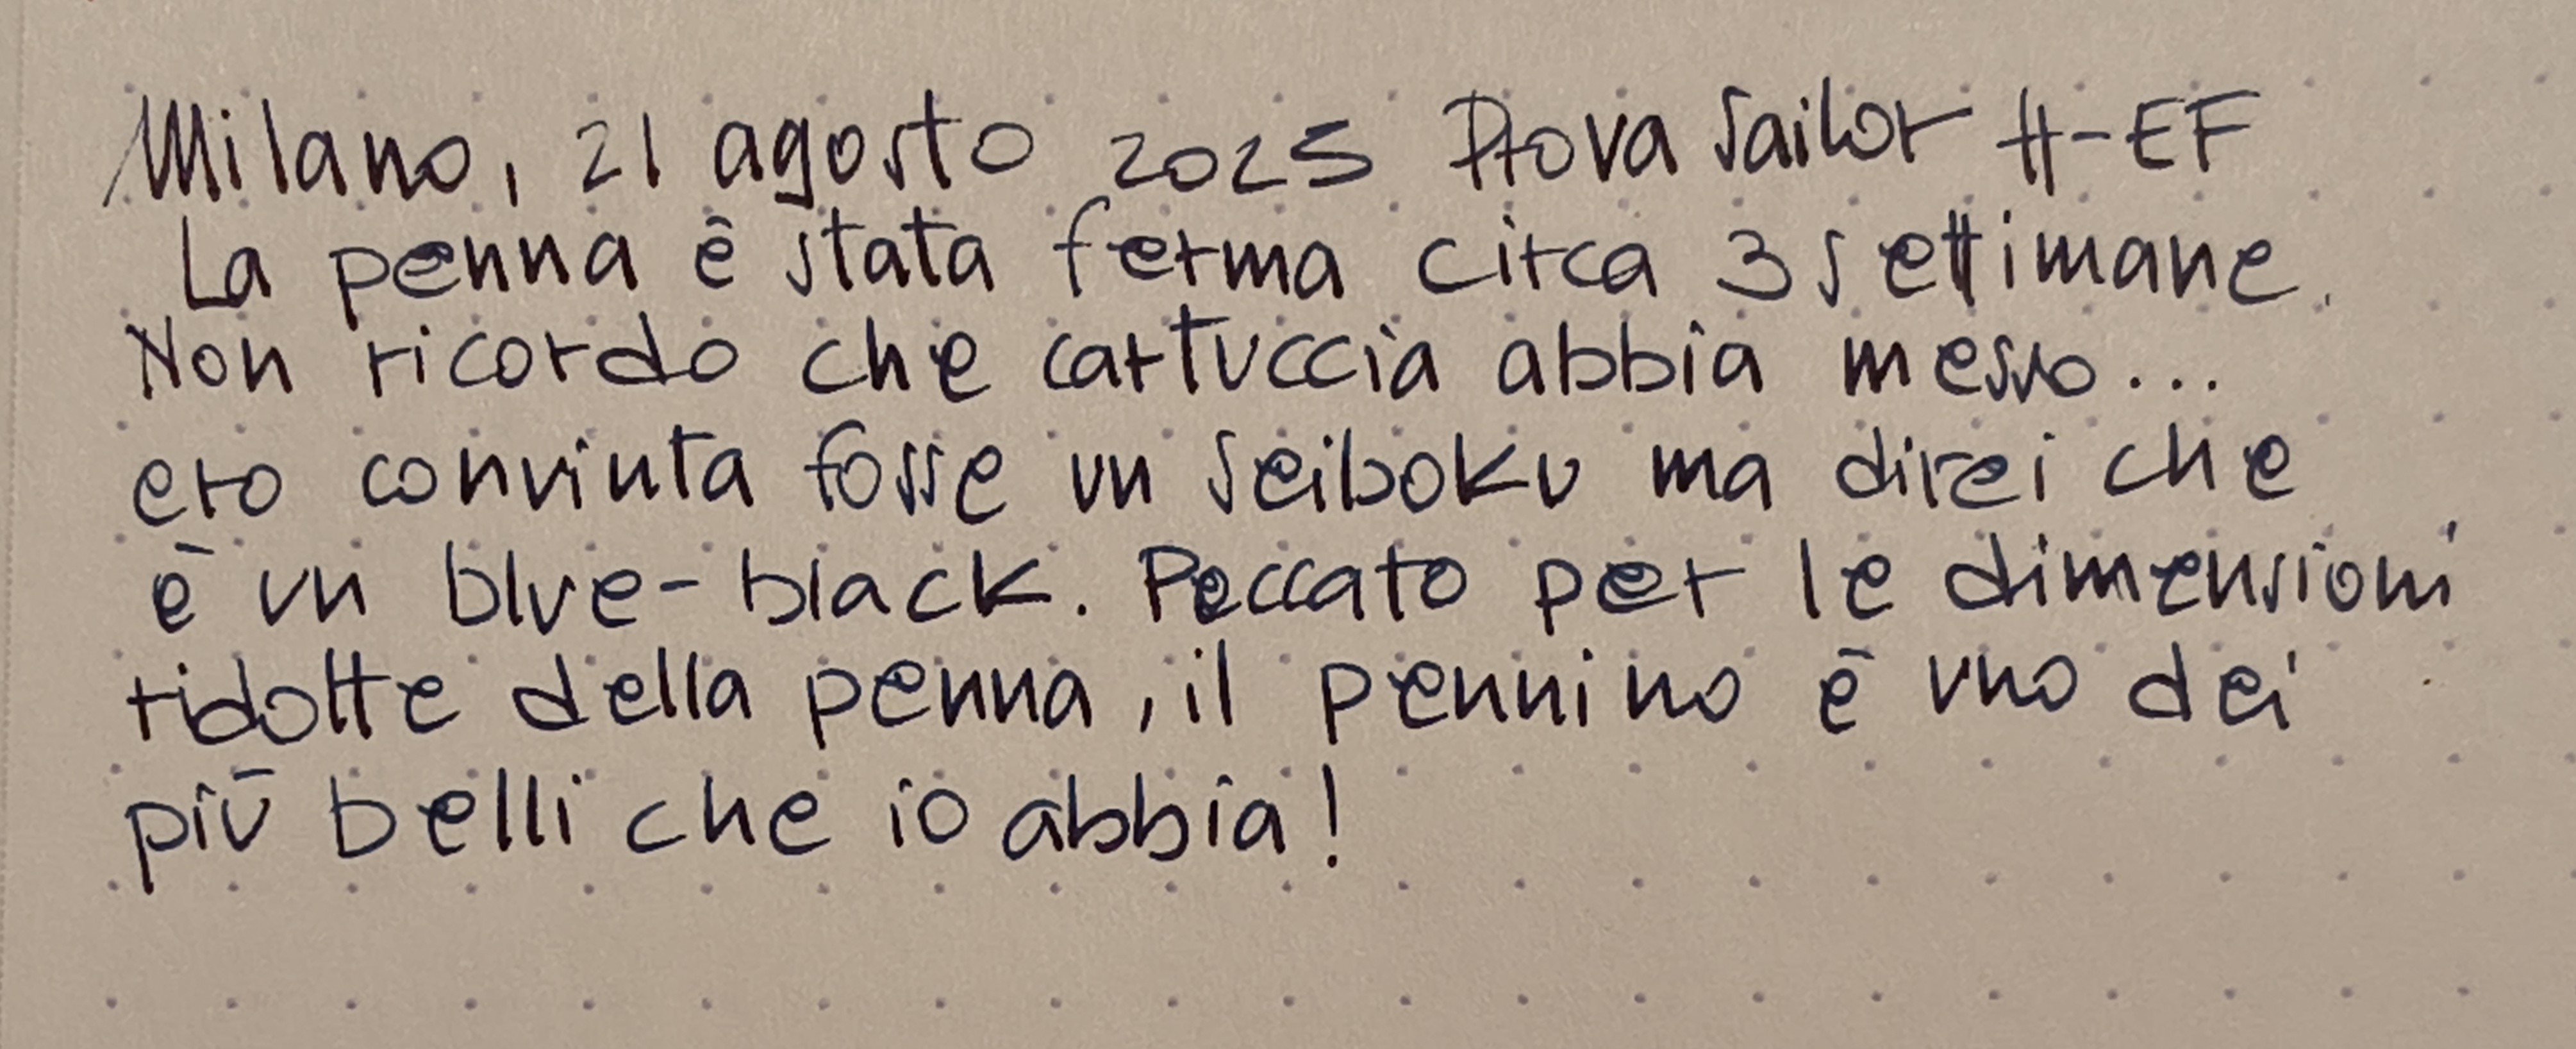 Milano, 21 agosto 2025 Prova Sailor H-EF
La penna è stata ferma circa 3 settimane.
Non ricordo che cartuccia abbia messo...
ero convinta fosse un Seiboku ma direi che
è un blue-black. Peccato per le dimensioni
ridotte della penna, il pennino è uno dei
più belli che io abbia!